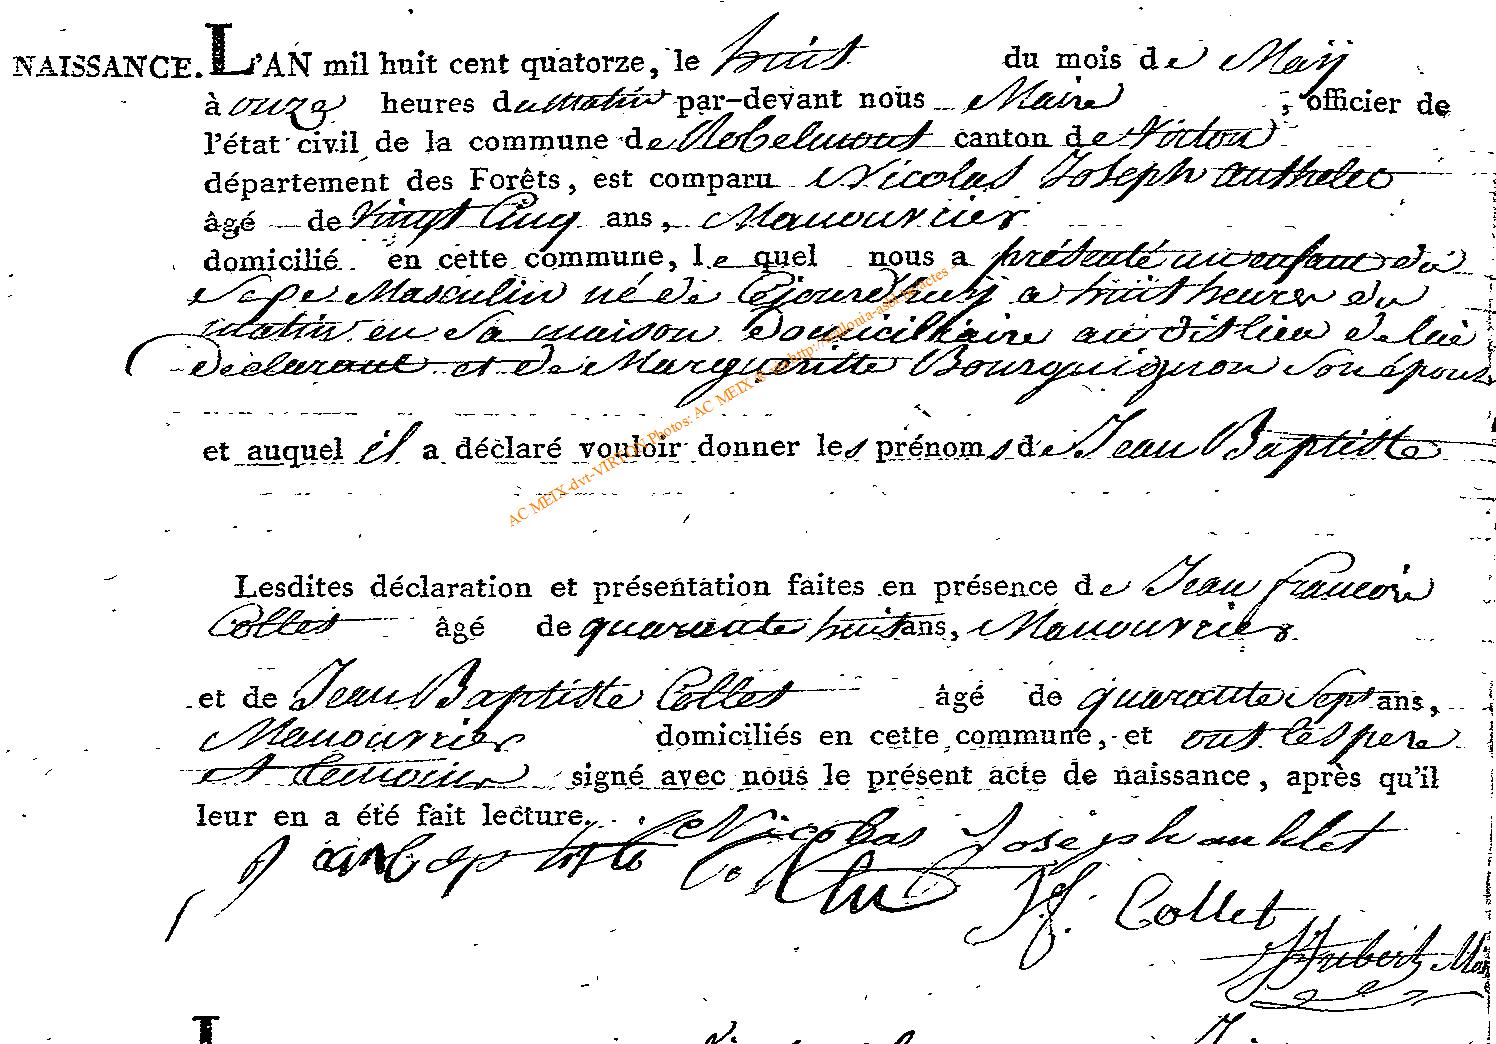 NAISSANCE. L'AN mil huit cent quatorze, le huit du mois de Maÿ
à onze heures du matin par-devant nous Maire, officier de
l'état civil de la commune de Robelmont canton de Virton
département des Forêts, est comparu Nicolas Joseph authelet
âgé de vingt Cinq ans, Manouvrier
domicilié en cette commune, le quel nous a présenté un enfant du
Sexe Masculin né de Cejourd'huy a huit heures du
matin en Sa maison domiciliaire au dit lieu de lui
déclarant et de Margueritte Bourguignon Son épouse
et auquel il a déclaré vouloir donner les prénoms de Jean Baptiste
Lesdites déclaration et présentation faites en présence de Jean francois
Collet âgé de quarante huit ans, Manouvrier
et de Jean Baptiste Collet âgé de quarante Sept ans,
Manouvrier domiciliés en cette commune, et ont les pere
et temoins signé avec nous le présent acte de naissance, après qu'il
leur en a été fait lecture. Nicolas Joseph authlet
Jf. Collet
Hubert
AC MEIX-dvt-VIRTON Photos: AC MEIX